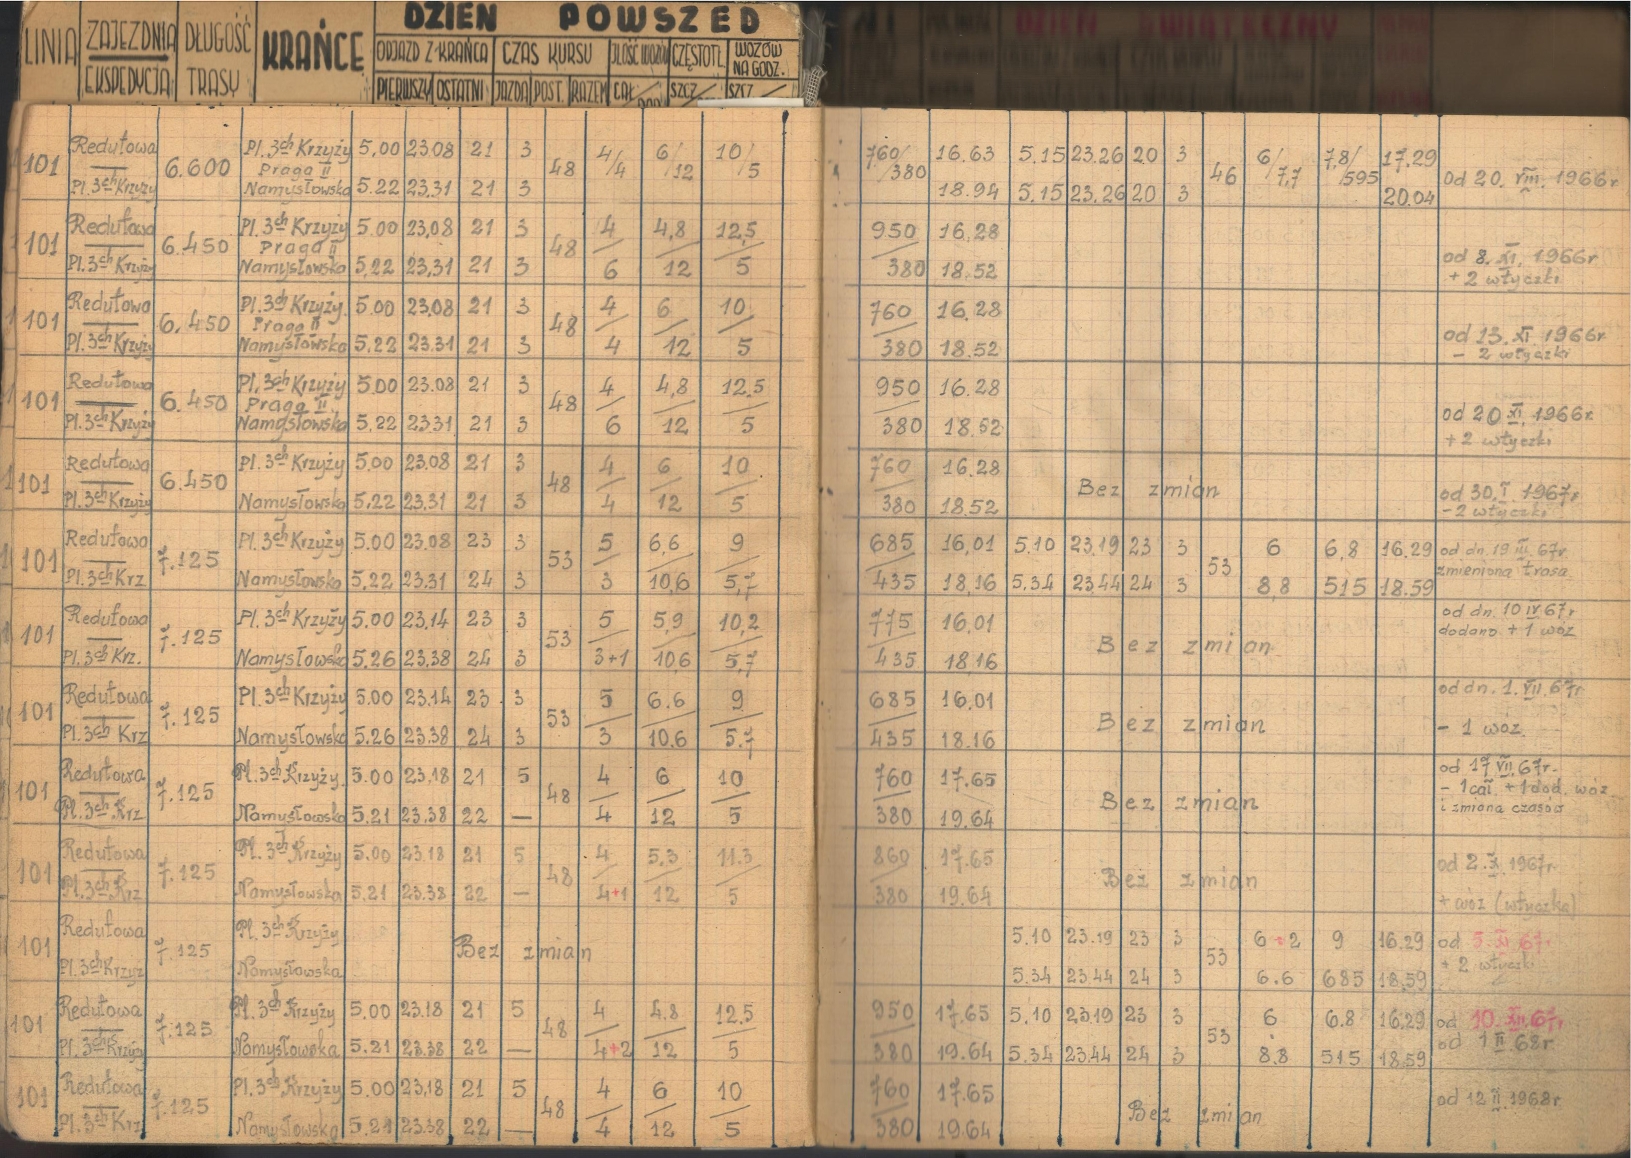 LINIA ZAJEZDNIA EKSPEDYCJA DŁUGOŚĆ TRASY KRAŃCE DZIEŃ POWSZED
ODJAZD Z KRAŃCA CZAS KURSU ILOŚĆ WOZÓW CZĘSTOTL. WOZÓW NA GODZ.
PIERWSZY OSTATNI JAZDA POST. RAZEM CAŁ/ SZCZ/ SZCZ/
DZIEŃ ŚWIĄTECZNY
101 Redutowa Pl. 3ch Krzyży 6.600 Pl. 3ch Krzyży 5,00 23.08 21 3 48 4/4 6/12 10/5 760/380 16.63 5.15 23.26 20 3 46 6/7,7 7,8/595 17.29
Praga II
Namysłowska 5.22 23.31 21 3 18.94 5.15 23.26 20 3 20.04 od 20. VIII. 1966r
101 Redutowa 6.450 Pl. 3ch Krzyży 5.00 23,08 21 3 48 4 4,8 12,5 950 16.28
Praga II
Pl. 3ch Krzyży Namysłowska 5,22 23,31 21 3 6 12 5 380 18.52 od 8. XI. 1966r
+ 2 wtyczki
101 Redutowa 6.450 Pl. 3ch Krzyży. 5.00 23,08 21 3 48 4 6 10 760 16,28
Praga II
Pl. 3ch Krzyży Namysłowska 5,22 23.31 21 3 4 12 5 380 18.52 od 13. XI 1966r
- 2 wtyczki
101 Redutowa 6.450 Pl. 3ch Krzyży 5.00 23.08 21 3 48 4 4,8 12,5 950 16.28
Praga II
Pl. 3ch Krzyży Namysłowska 5,22 23.31 21 3 6 12 5 380 18.52 od 20 XI. 1966r
+ 2 wtyczki
101 Redutowa 6.450 Pl. 3ch Krzyży 5,00 23,08 21 3 48 4 6 10 760 16.28 Bez zmian
Pl. 3ch Krzyży Namysłowska 5,22 23,31 21 3 4 12 5 380 18.52 od 30. I. 1967r
- 2 wtyczki
101 Redutowa 7.125 Pl. 3ch Krzyży 5.00 23,08 23 3 53 5 6,6 9 685 16,01 5.10 23,19 23 3 53 6 6,8 16.29 od dn. 19 III. 67r.
zmieniona trasa
Pl. 3ch Krz Namysłowska 5,22 23.31 24 3 3 10,6 5,7 435 18,16 5.34 23.44 24 3 8,8 515 18.59
101 Redutowa 7.125 Pl. 3ch Krzyży 5.00 23.14 23 3 53 5 5,9 10,2 775 16,01 Bez zmian od dn. 10 IV 67r
dodano + 1 wóz
Pl. 3ch Krz. Namysłowska 5.26 23.38 24 3 3+1 10,6 5,7 435 18,16
101 Redutowa 7.125 Pl. 3ch Krzyży 5.00 23.14 23 3 53 5 6.6 9 685 16,01 Bez zmian od dn. 1. VII. 67r
Pl. 3ch Krz Namysłowska 5.26 23.38 24 3 3 10.6 5.7 435 18.16 - 1 wóz.
101 Redutowa 7.125 Pl. 3ch Krzyży. 5.00 23,18 21 5 48 4 6 10 760 17.65 Bez zmian od 17 VII. 67r.
- 1 cał. + 1 dod. wóz
i zmiana czasów
Pl. 3ch Krz Namysłowska 5.21 23.38 22 — 4 12 5 380 19.64
101 Redutowa 7.125 Pl. 3ch Krzyży 5.00 23.18 21 5 48 4 5,3 11.3 860 17.65 Bez zmian od 2. X. 1967r.
Pl. 3ch Krz Namysłowska 5.21 23.38 22 — 4+1 12 5 380 19.64 + wóz (wtyczka)
101 Redutowa 7.125 Pl. 3ch Krzyży Bez zmian 5.10 23.19 23 3 53 6+2 9 16.29 od 5. XI. 67r
+ 2 wtyczki
Pl. 3ch Krzyż Namysłowska 5.34 23.44 24 3 6.6 685 18,59
101 Redutowa 7.125 Pl. 3ch Krzyży 5,00 23.18 21 5 48 4 4,8 12,5 950 17,65 5.10 23.19 23 3 53 6 6.8 16,29 od 10. XII. 67r
od 1 II 68r.
Pl. 3ch Krzyży Namysłowska 5.21 23.38 22 — 4+2 12 5 380 19.64 5.34 23.44 24 3 8.8 515 18.59
101 Redutowa 7.125 Pl. 3ch Krzyży 5.00 23,18 21 5 48 4 6 10 760 17.65 Bez zmian od 12 II. 1968r.
Pl. 3ch Krz Namysłowska 5.21 23.38 22 — 4 12 5 380 19.64